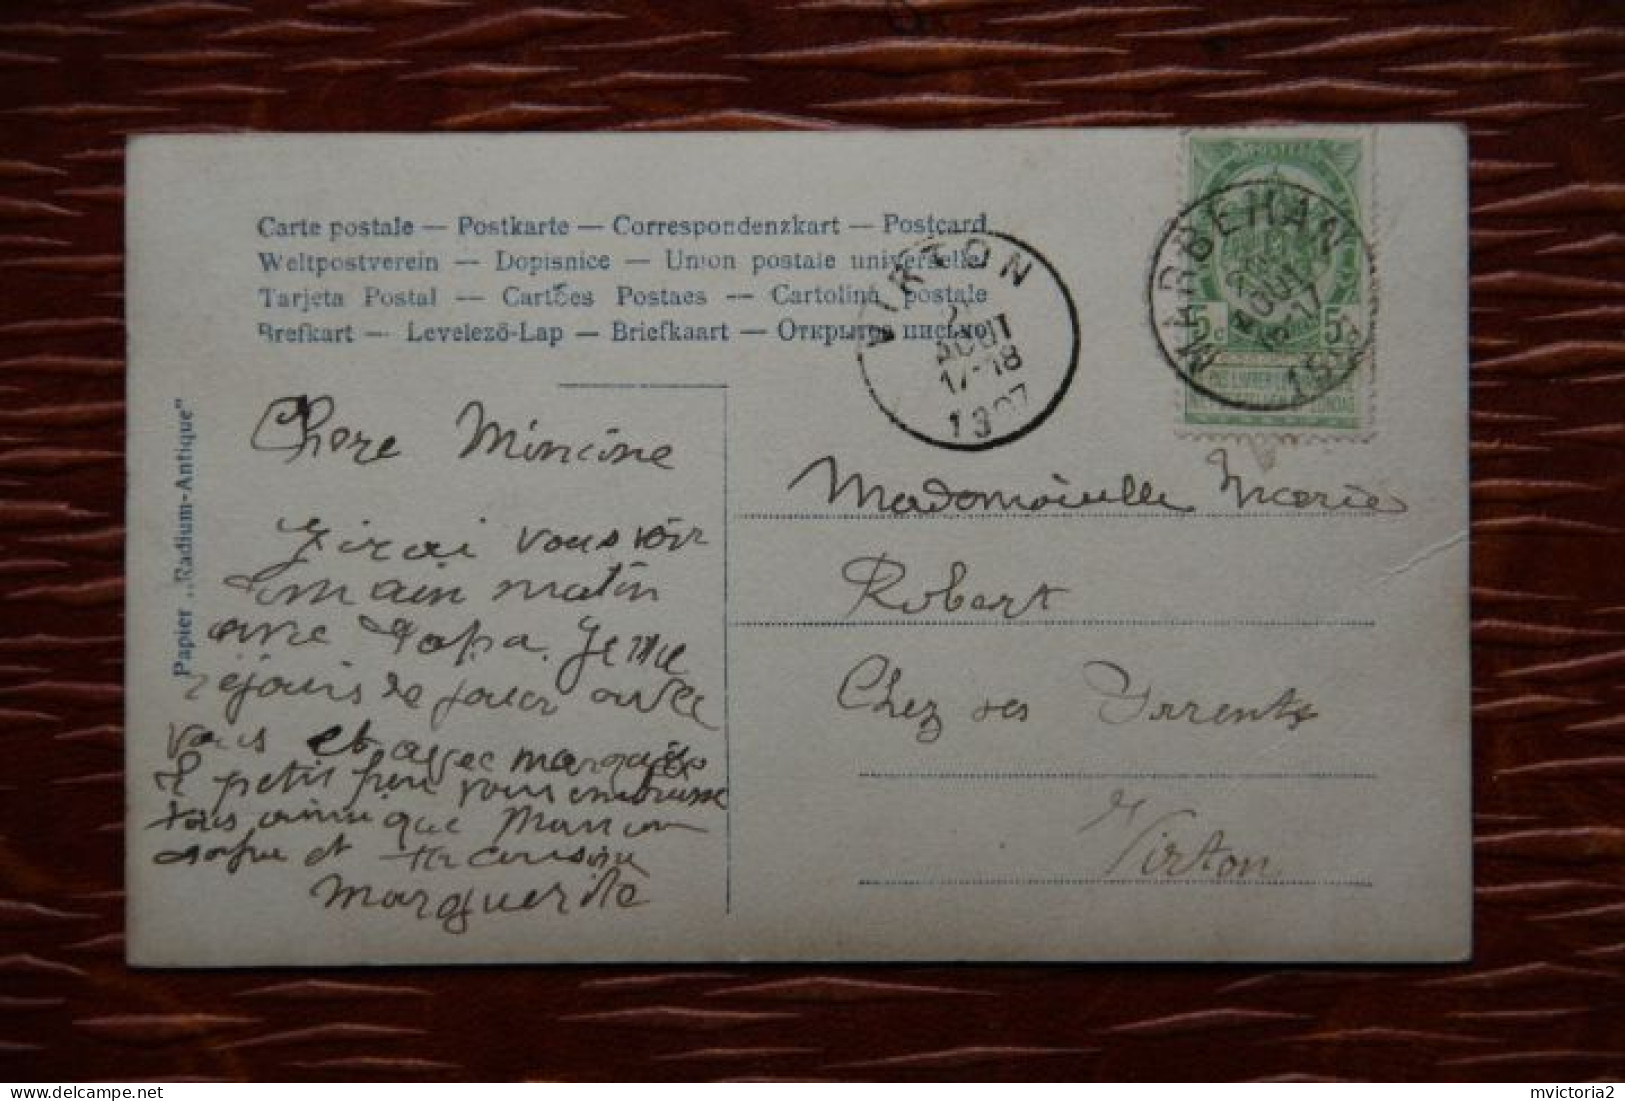 Carte postale — Postkarte — Correspondenzkart — Postcard
Weltpostverein — Dopisnice — Union postale universelle
Tarjeta Postal — Cartões Postaes — Cartolina postale
Brefkart — Levelező-Lap — Briefkaart — Открытое письмо
Papier „Radium-Antique"
VIRTON
AOUT
17-18
1907
MARBEHAN
AOUT
POSTES
5c 5c
Chere Minine
J'irai vous voir
demain matin
avec Papa. Je me
réjouis de jouer avec
vous et avec
le petit frere vous embrasse
tous ainsi que Maman
et cousine
Marguerite
Mademoiselle Marie
Robert
Chez ses Parents
Virton
mvictoria2